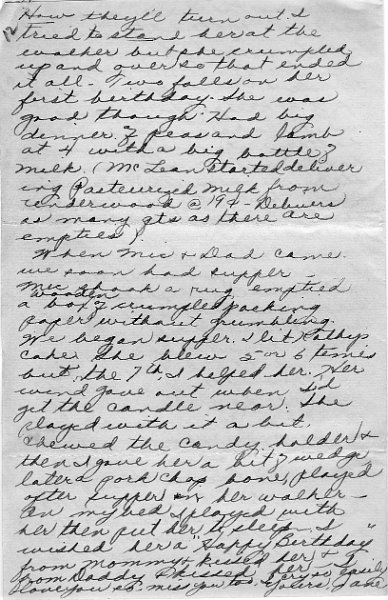 How they'll turn out. I
2
tried to stand her at the
walker but she crumpled
up and over so that ended
it all - Two falls on her
first birthday. She was
good though. Had big
dinner of peas and lamb
at 4 with a big bottle of
milk. (McLean started deliver
ing Pasteurized milk from
Underwood @ 19¢ - Delivers
as many qts as there are
empties).
When Mic & Dad came
we soon had supper -
Mic shook a rug, emptied
a wooden box of crumpled packing
paper without grumbling.
We began supper. I lit Kathy's
cake. She blew 5 or 6 times
but the 7th, I helped her. Her
wind gave out when I'd
get the candle near. She
played with it a bit,
chewed the candy holder &
then I gave her a bit of wedge
later a pork chop bone, played
after supper in her walker -
on my bed I played with
her then put her to sleep. I
wished her a "Happy Birthday"
from Mommy & kissed her &
from Daddy & kissed her -
love you so, miss you too
Yours, Jane